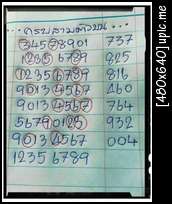 34578901 737
1235 6789 825
1235 6789 816
9013 4567 460
9013 4567 764
5679 0123 932
9013 4567 004
1235 6789
[480x640] upic.me